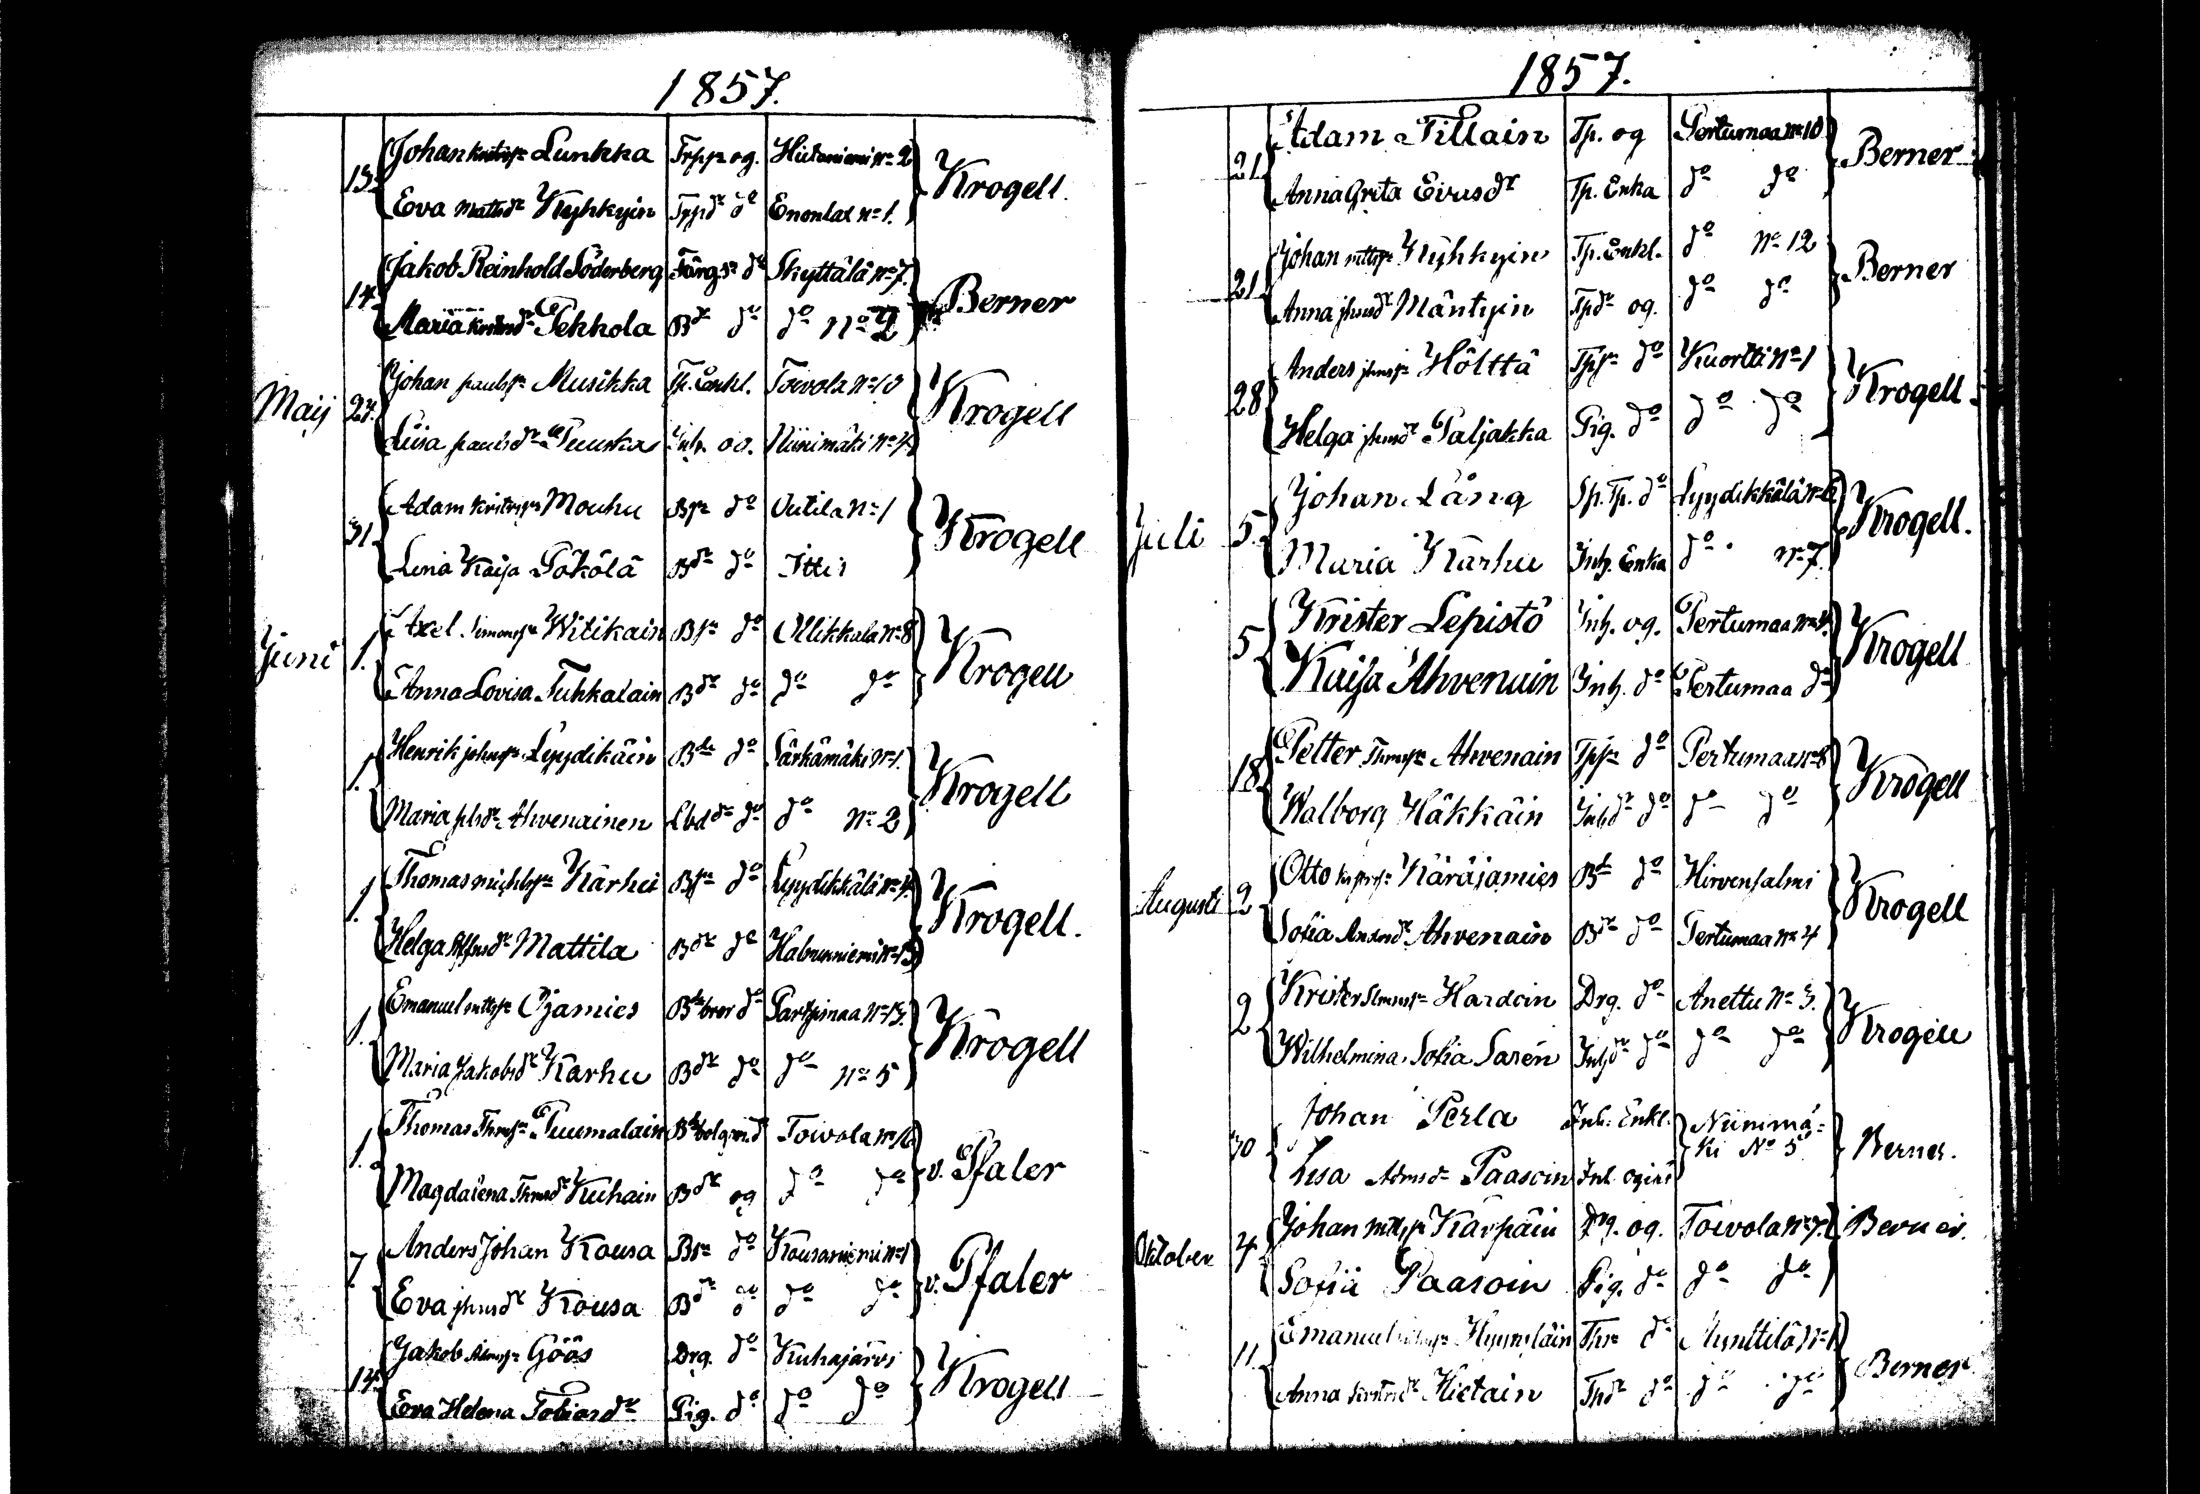 1857.
13. Johan Kristersn Lunkka Trpp og. Hietaniemi No 2 Krogell.
Eva Mattsdr Kyhkyin Tppdr do Enonlax No 1.
14. Jakob Reinhold Söderberg Färgsn do Skyttälä No 7. Berner
Maria Kristersdr Pekkola Bdr do do No 2
Maij 24. Johan paulsn Musikka Tp. Enkl. Toivola No 10 Krogell
Lisa paulsdr Puuska Inh. og. Niinimäki No 4
31. Adam Kristersn Mouhu Bsn do Uutila No 1 Krogell
Lena Kaisa Pökölä Bdr do Itti
Juni 1. Axel Simonsn Witikain Bsn do Ollikkala No 8 Krogell
Anna Lovisa Tuhkalain Bdr do do do
1. Henrik johnsn Lyydikäin Bde do Särkämäki No 1. Krogell
Maria phsdr Ahvenainen Lbddr do do No 2
1. Thomas michelsn Karhu Bsn do Lyydikkälä No 4. Krogell.
Helga Stefnsdr Mattila Bdr do Halmenniemi No 13
1. Emanuel mattsn Ojamies Bdebror do Partsimaa No 13. Krogell
Maria Jakobsdr Karhu Bdr do do No 5
1. Thomas Thmsn Puumalain Bdebolgm. do Toivola No 16 v. Pfaler
Magdalena Thmsdr Kuhain Bdr og do do
7 Anders Johan Kousa Bsn do Kousaniemi No 1 v. Pfaler
Eva jhnsdr Kousa Bdr do do do
14. Jakob Admsn Göös Drg. do Kuhajärvi Krogell
Eva Helena Tobiasdr Pig. do do do
1857.
21 Adam Pillain Tp. og Pertumaa No 10 Berner
Anna Greta Eriusdr Tp. Enka do do
21 Johan mttsn Kyhkyin Tp. Enkl. do No 12 Berner
Anna jhnsdr Mäntyin Tpdr og. do do
28 Anders jhnsn Hölttä Tpsn do Kuortti No 1 Krogell.
Helga jhnsdr Paljakka Pig. do do do
Juli 5 Johan Lång Sp. Tp. do Lyydikkälä No 6 Krogell.
Maria Karhu Inh. Enka do No 7.
5 Krister Lepistö Inh. og. Pertumaa No 4. Krogell
Kaisa Ahvenain Inh. do Pertumaa do
18 Petter Thmsn Ahvenain Tpsn do Pertumaa No 8 Krogell
Walborg Häkkäin Inhdr do do do
Augusti 2 Otto Kaprsn Käräjamies Bd do Hirvensalmi Krogell
Sofia Andersdr Ahvenain Bdr do Pertumaa No 4
2 Krister Simonsn Hardoin Drg. do Anettu No 3. Krogell
Wilhelmina Sofia Sarén Inhdr do do do
30 Johan Perla Inh. Enkl. Niinimä=
ki No 5 Berner.
Lisa Admsdr Paasoin Inh. ogint
Oktober 4 Johan mttsn Karpäin Drg. og. Toivola No 7. Berner.
Sofia Paasoin Pig. do do do
11 Emanuel Hyyryläin Thr do Mynttilä No 1 Berner
Anna Kristersdr Hietain Tpdr do do do